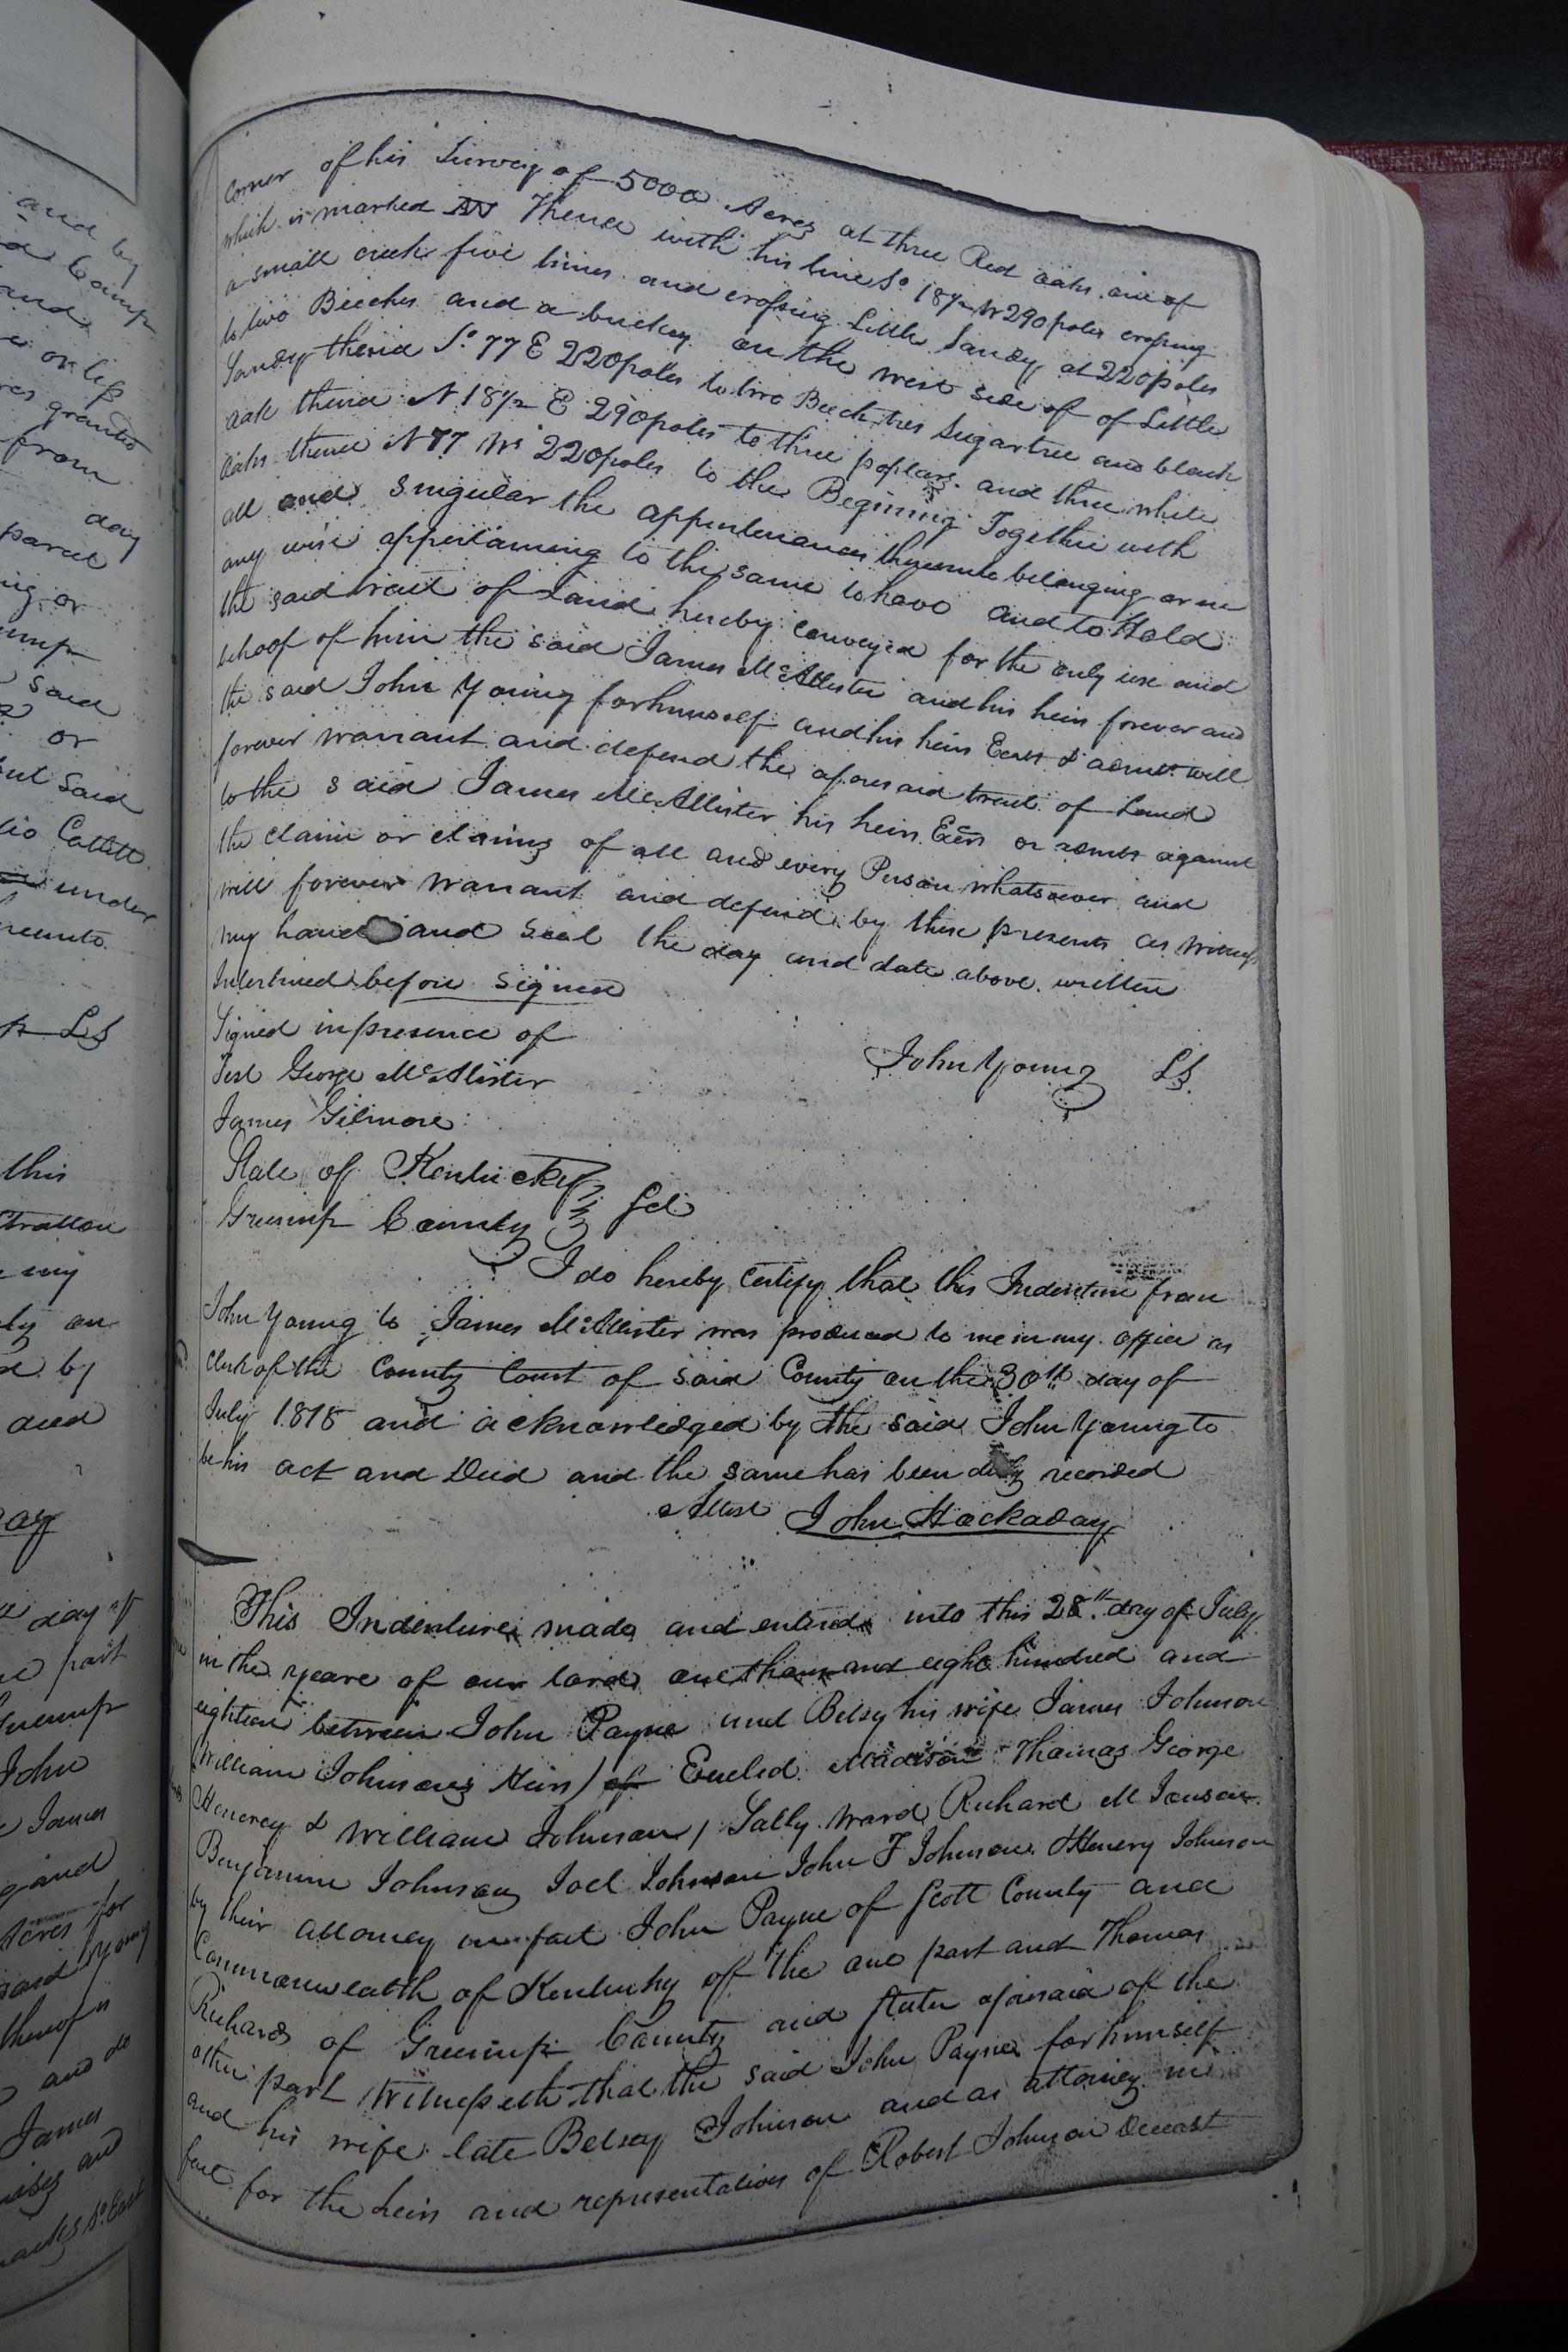 and by
and
or less
granted
from
day
parcel
ing or
said
or
but said
Catlett
under
LS
this
Stratton
my
ly on
by
deed
day of
part
John
James
and
Acres for
said Young
thereof
and do
James
and
So East
corner of his Survey of 5000 Acres at three Red oaks one of
which is marked AN Thence with his line So 18½ W 290 poles crossing
a small creek five times and crossing Little Sandy at 220 poles
to two Beeches and a buckey on the west side of of Little
Sandy thence So 77 E 220 poles to two Beech tres Sugartree and black
oak thence N 18½ E 290 poles to three poplars and three white
oaks thence N 77 W 220 poles to the Begining Together with
all and singular the appurtenances thereunto belonging or in
any wise appertaining to the same to have and to Hold
the said tract of Land hereby conveyed for the only use and
behoof of him the said James McAllister and his heirs forever and
the said John Young for himself and his heirs Excrs & admrs will
forever warrant and defend the aforesaid tract of Land
to the said James McAllister his heirs Exrs or admrs against
the claim or claims of all and every Person whatsoever and
will forever warrant and defend by these presents as witness
my hand and seal the day and date above written
Interlined before signed
Signed in presence of
John Young LS.
Test George McAllister
James Gilmore
State of Kentucky
Greenup County Sct
I do hereby certify that this Indenture from
John Young to James McAllister was produced to me in my office as
clerk of the County Court of said County on the 30th day of
July 1818 and acknowledged by the said John Young to
be his act and Deed and the same has been duly recorded
Attest John Hockaday
This Indenture made and entered into this 28th day of July
in the yeare of our lord one thousand eight hundred and
eighteen between John Payne and Betsy his wife James Johnson
(William Johnsons Heirs) of Euclid Madison Thomas George
Henerey & William Johnson) Sally Ward Richard M Jonson
Benjamin Johnson Joel Johnson John F Johnson Henery Johnson
by their attorney in fact John Payne of Scott County and
Commonwealth of Kentucky of the one part and Thomas
Richards of Greenup County and State aforesaid of the
other part Witnesseth that the said John Payne for himself
and his wife late Betsey Johnson and as attorney in
fact for the heirs and representatives of Robert Johnson Deceast